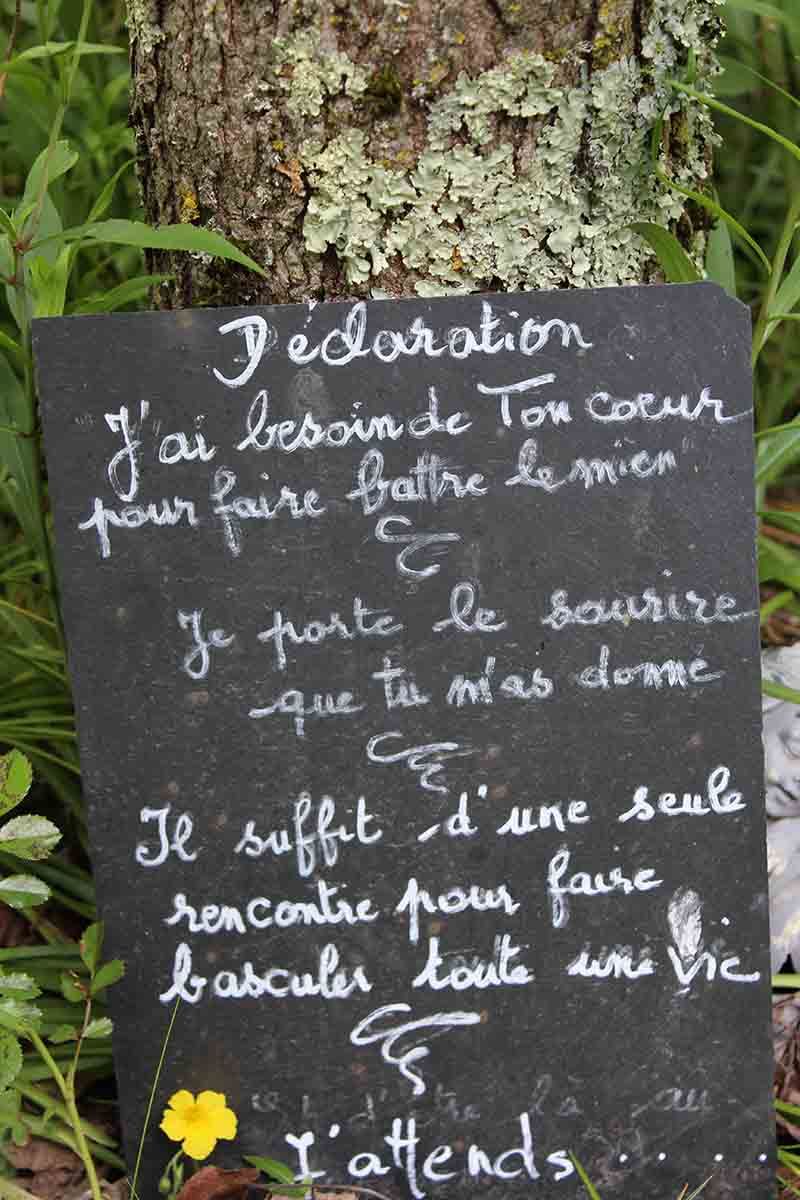 Déclaration
"J'ai besoin de Ton coeur
pour faire battre le mien"
Je porte le sourire
que tu m'as donné
Il suffit d'une seule
rencontre pour faire
basculer toute une Vie
d'être là au
J'attends . . . .